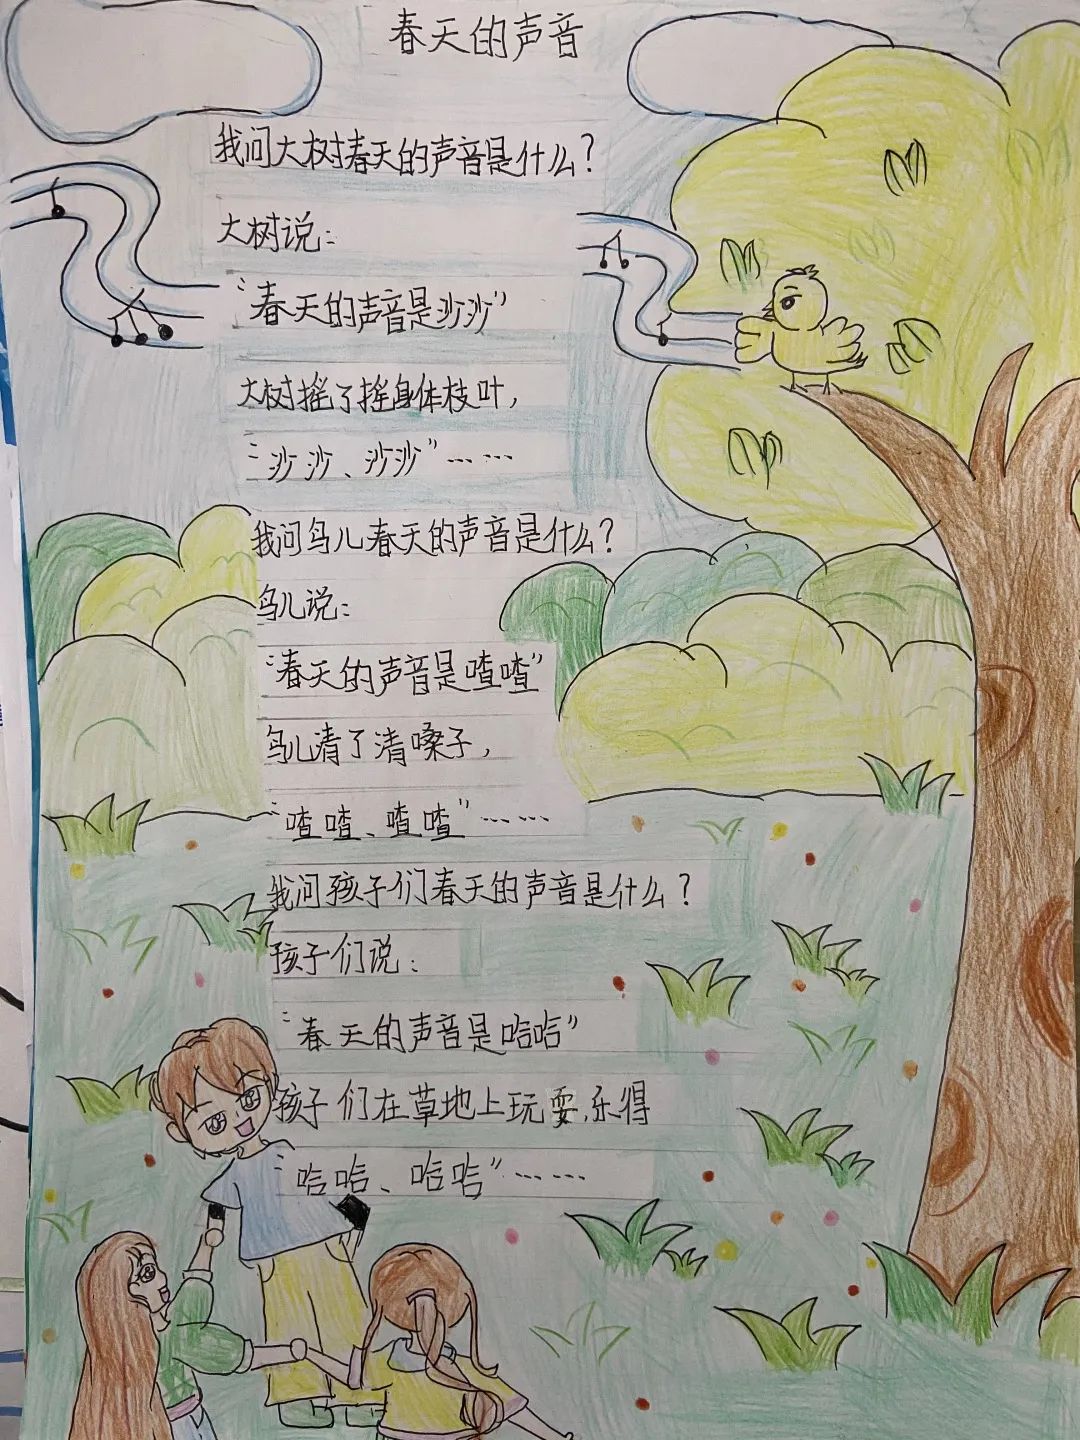 春天的声音
我问大树春天的声音是什么?
大树说:
“春天的声音是沙沙”
大树摇了摇身体枝叶,
“沙沙、沙沙”……
我问鸟儿春天的声音是什么?
鸟儿说:
“春天的声音是喳喳”
鸟儿清了清嗓子,
“喳喳、喳喳”……
我问孩子们春天的声音是什么?
孩子们说:
“春天的声音是哈哈”
孩子们在草地上玩耍,乐得
“哈哈、哈哈”……